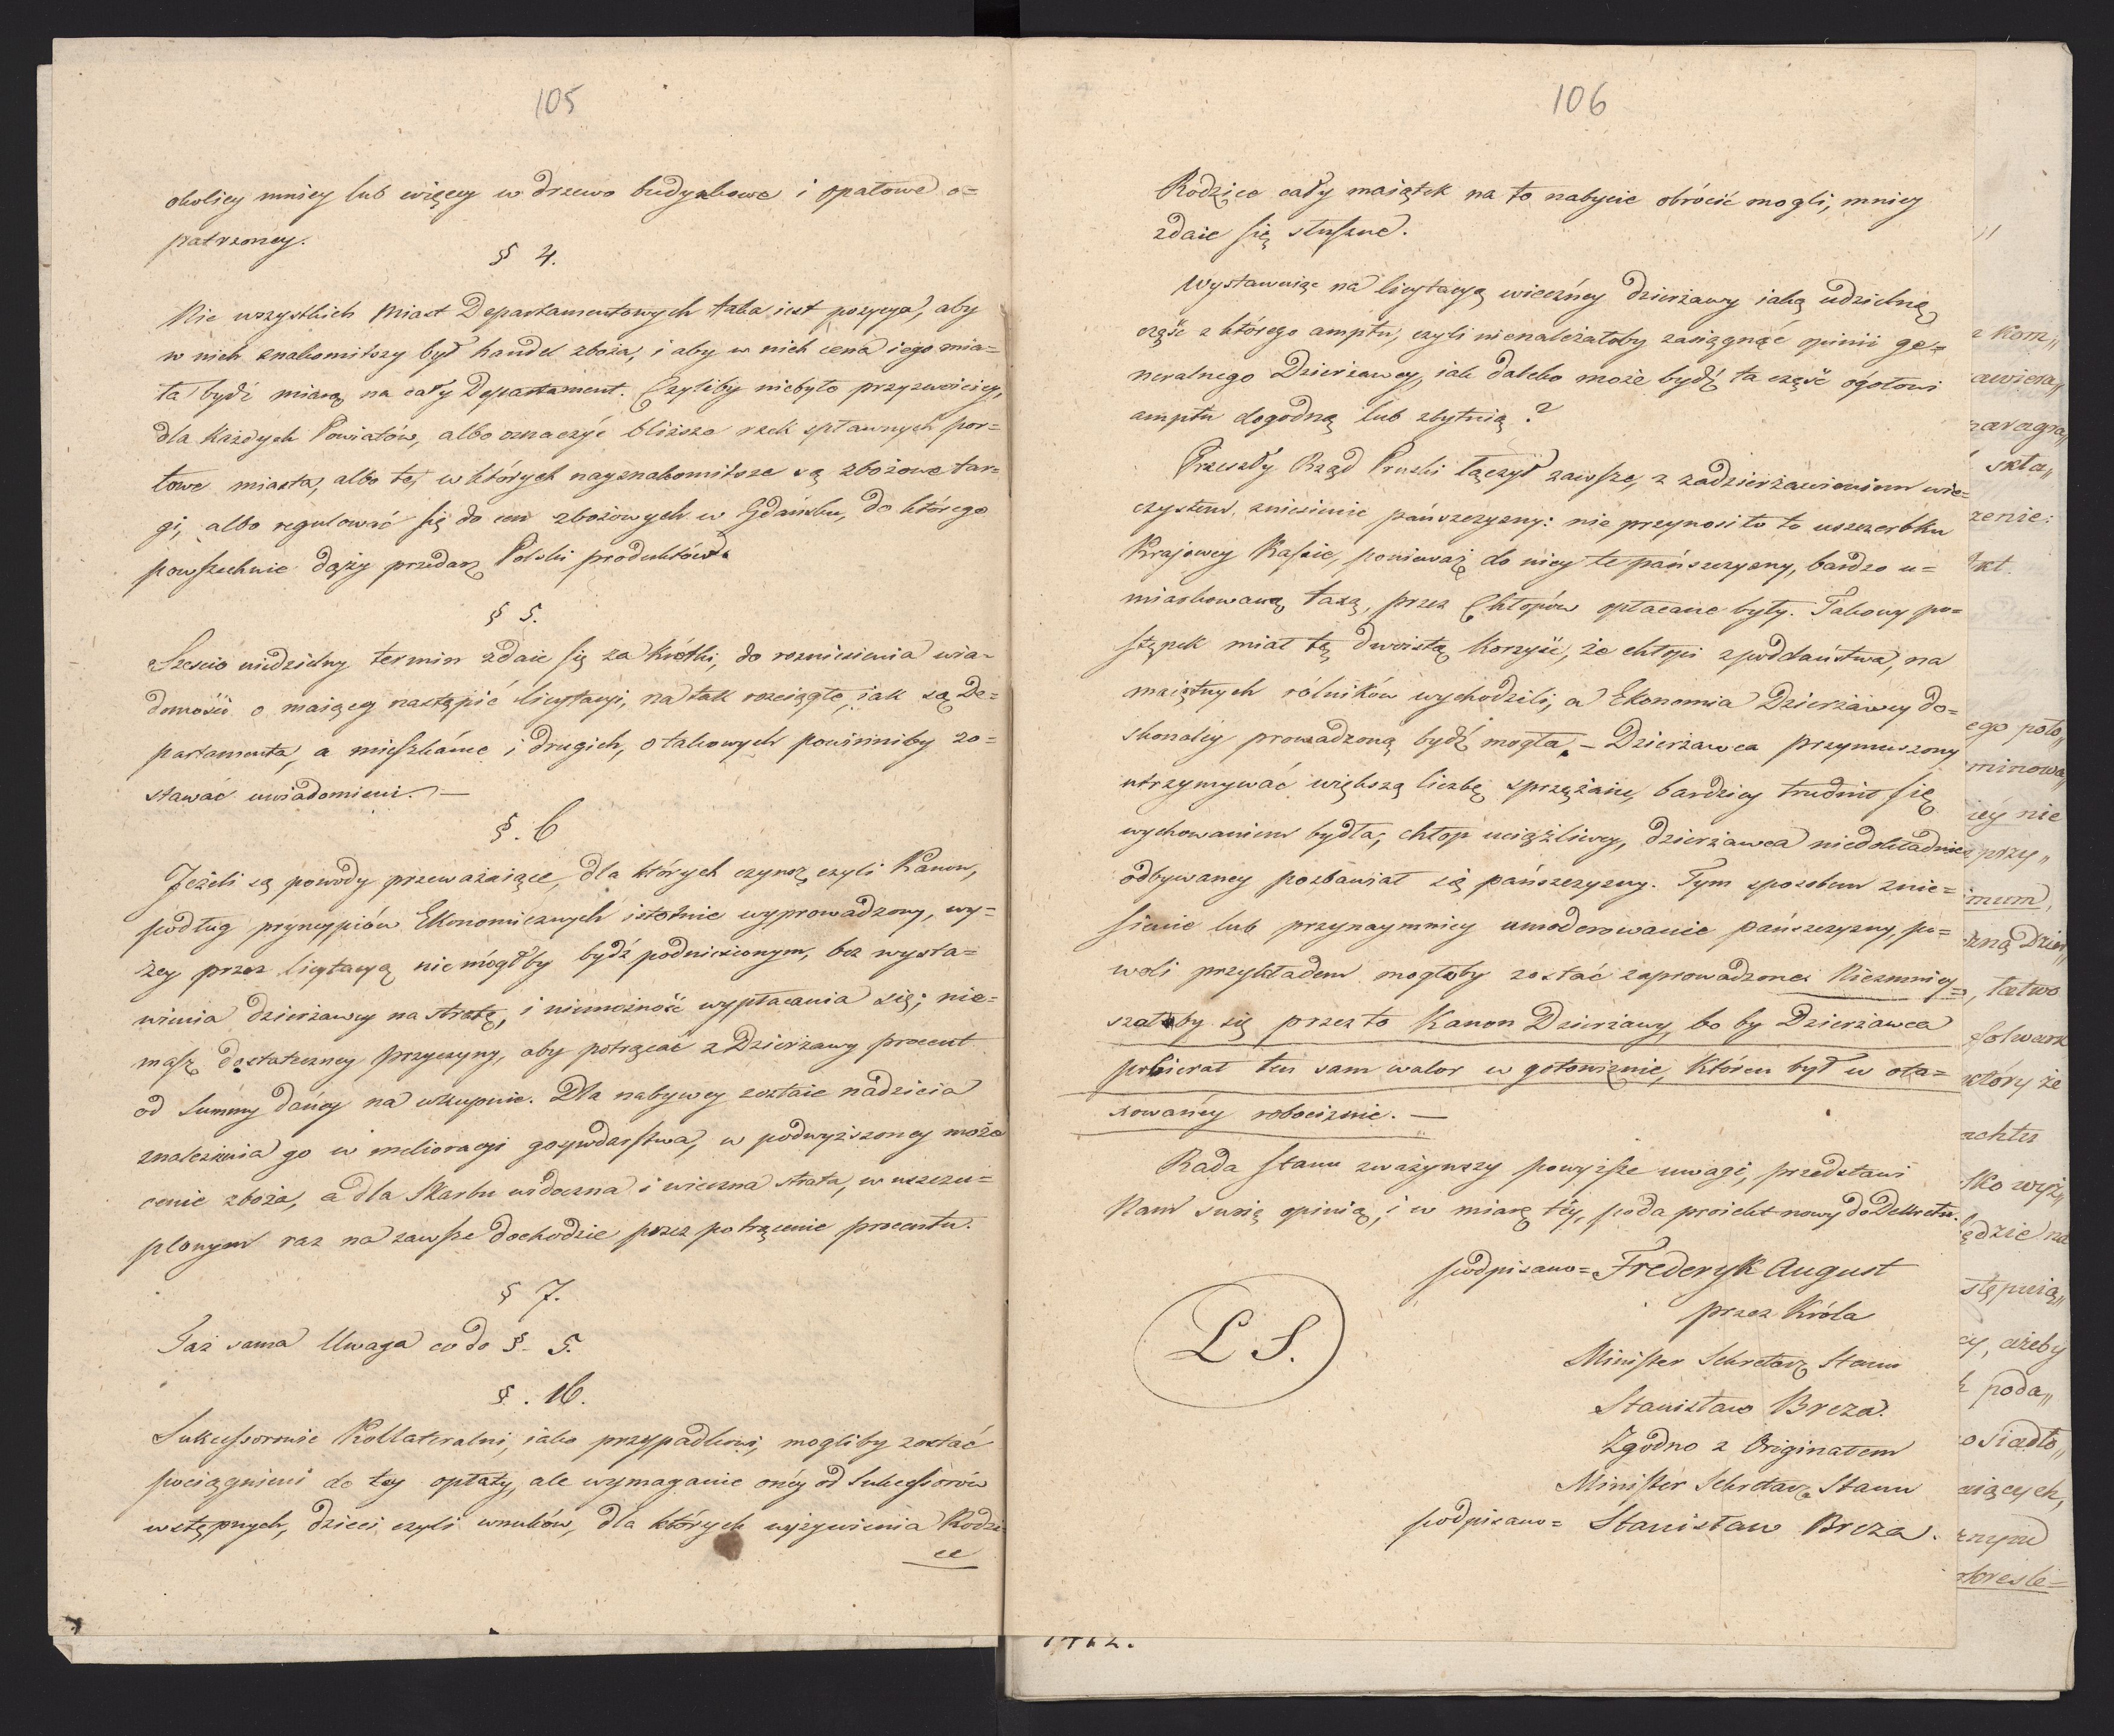 105
okolicy mniey lub więcey w drzewo budynkowe i opałowe o=
patrzoney.
§ 4.
Nie wszystkich Miast Departamentowych taka iest pozycya, aby
w nich znakomitszy był handel zboża, i aby w nich cena iego mia=
ła bydź miarą na cały Departament. Czyliby niebyło przyzwoiciey,
dla każdych Powiatów, albo oznaczyć bliższe rzek spławnych por=
towe miasta, albo te, w których nayznakomitsze są zbożowe tar=
gi, albo regulować się do cen zbożowych w Gdańsku, do którego
powszechnie dąży przedarz Polski produktów.
§ 5.
Sześcio niedzielny termin zdaie się za krótki, do rozniesienia wia=
domości o maiącey nastąpić licytacyi, na tak rozciągłe, iak są De=
partamenta, a mieszkańce i drugich, o takowych powinniby zo=
stawać uwiadomieni. —
§. 6
Jeżeli są powody przeważaiące, dla których czynsz czyli Kanon,
podług pryncypiów Ekonomicznych istotnie wyprowadzony, wy=
żey przez licytacyą niemógłby bydź podniesionym, bez wysta=
wienia dzierżawcy na stratę, i niemożność wypłacania się; nie=
masz dostateczney przyczyny, aby potrącać z Dzierżawy procent
od Summy daney na wkupnie. Dla nabywcy zostaie nadzieia
znalezienia go w melioracyi gospodarstwa, w podwyższoney może
cenie zboża, a dla Skarbu widoczna i wieczna strata, w uszczu=
plonym raz na zawsze dochodzie przez potrącenie procentu.
§ 7.
Taż sama Uwaga co do §. 5.
§. 16.
Sukcessorowie Kollateralni, iako przypadkowi, mogliby zostać
pociągnieni do tey opłaty, ale wymaganie oney od Sukcessorów
wstępnych, dzieci czyli wnuków, dla których wyżywienia Rodzi=
ce
106
Rodzice cały maiątek na to nabycie obrócić mogli, mniey
zdaie się słuszne.
Wystawuiąc na licytacyą wieczney dzierżawy iaką udzielną
część z którego amptu, czyli nienależałoby zasięgnąć opinii ge=
neralnego Dzierżawcy, iak daleko może bydź ta część ogółowi
amptu dogodną lub zbytnią?
Przeszły Rząd Pruski łączył zawsze, z zadzierżawieniem wie=
czystem, zniesienie pańszczyzny: nie przynosiło to uszczerbku
Krajowey Kassie, ponieważ do niey te pańszczyzny, bardzo u=
miarkowaną taxą, przez Chłopów opłacane były. Takowy po=
stępek miał tę dwoistą korzyść, że chłopi z poddaństwa, na
maiętnych rólników wychodzili, a Ekonomia Dzierżawcy do=
skonaley prowadzoną bydź mogła. – Dzierżawca przymuszony
utrzymywać większą liczbę sprzężaiu, bardziey trudnił się
wychowaniem bydła; chłop uciążliwey, dzierżawca niedokładnie
odbywaney pozbawiał się pańszczyzny. Tym sposobem znie=
sienie lub przynaymniey umoderowanie pańszczyzny, po=
woli przykładem mogłoby zostać zaprowadzone. Niezmniey=
szałby się przez to Kanon Dzierżawy, bo by Dzierżawca
pobierał ten sam walor w gotowiznie, któren był w ota=
xowaney robociznie. —
Rada Stanu zważywszy powyższe uwagi, przedstawi
Nam swoią opinią, i w miarę tey, poda proiekt nowy do Dekretu.
podpisano = Frederyk August
przez Króla
L S.
Minister Sekretarz Stanu
Stanisław Breza.
Zgodno z Originałem
Minister Sekretarz Stanu
podpisano = Stanisław Breza.